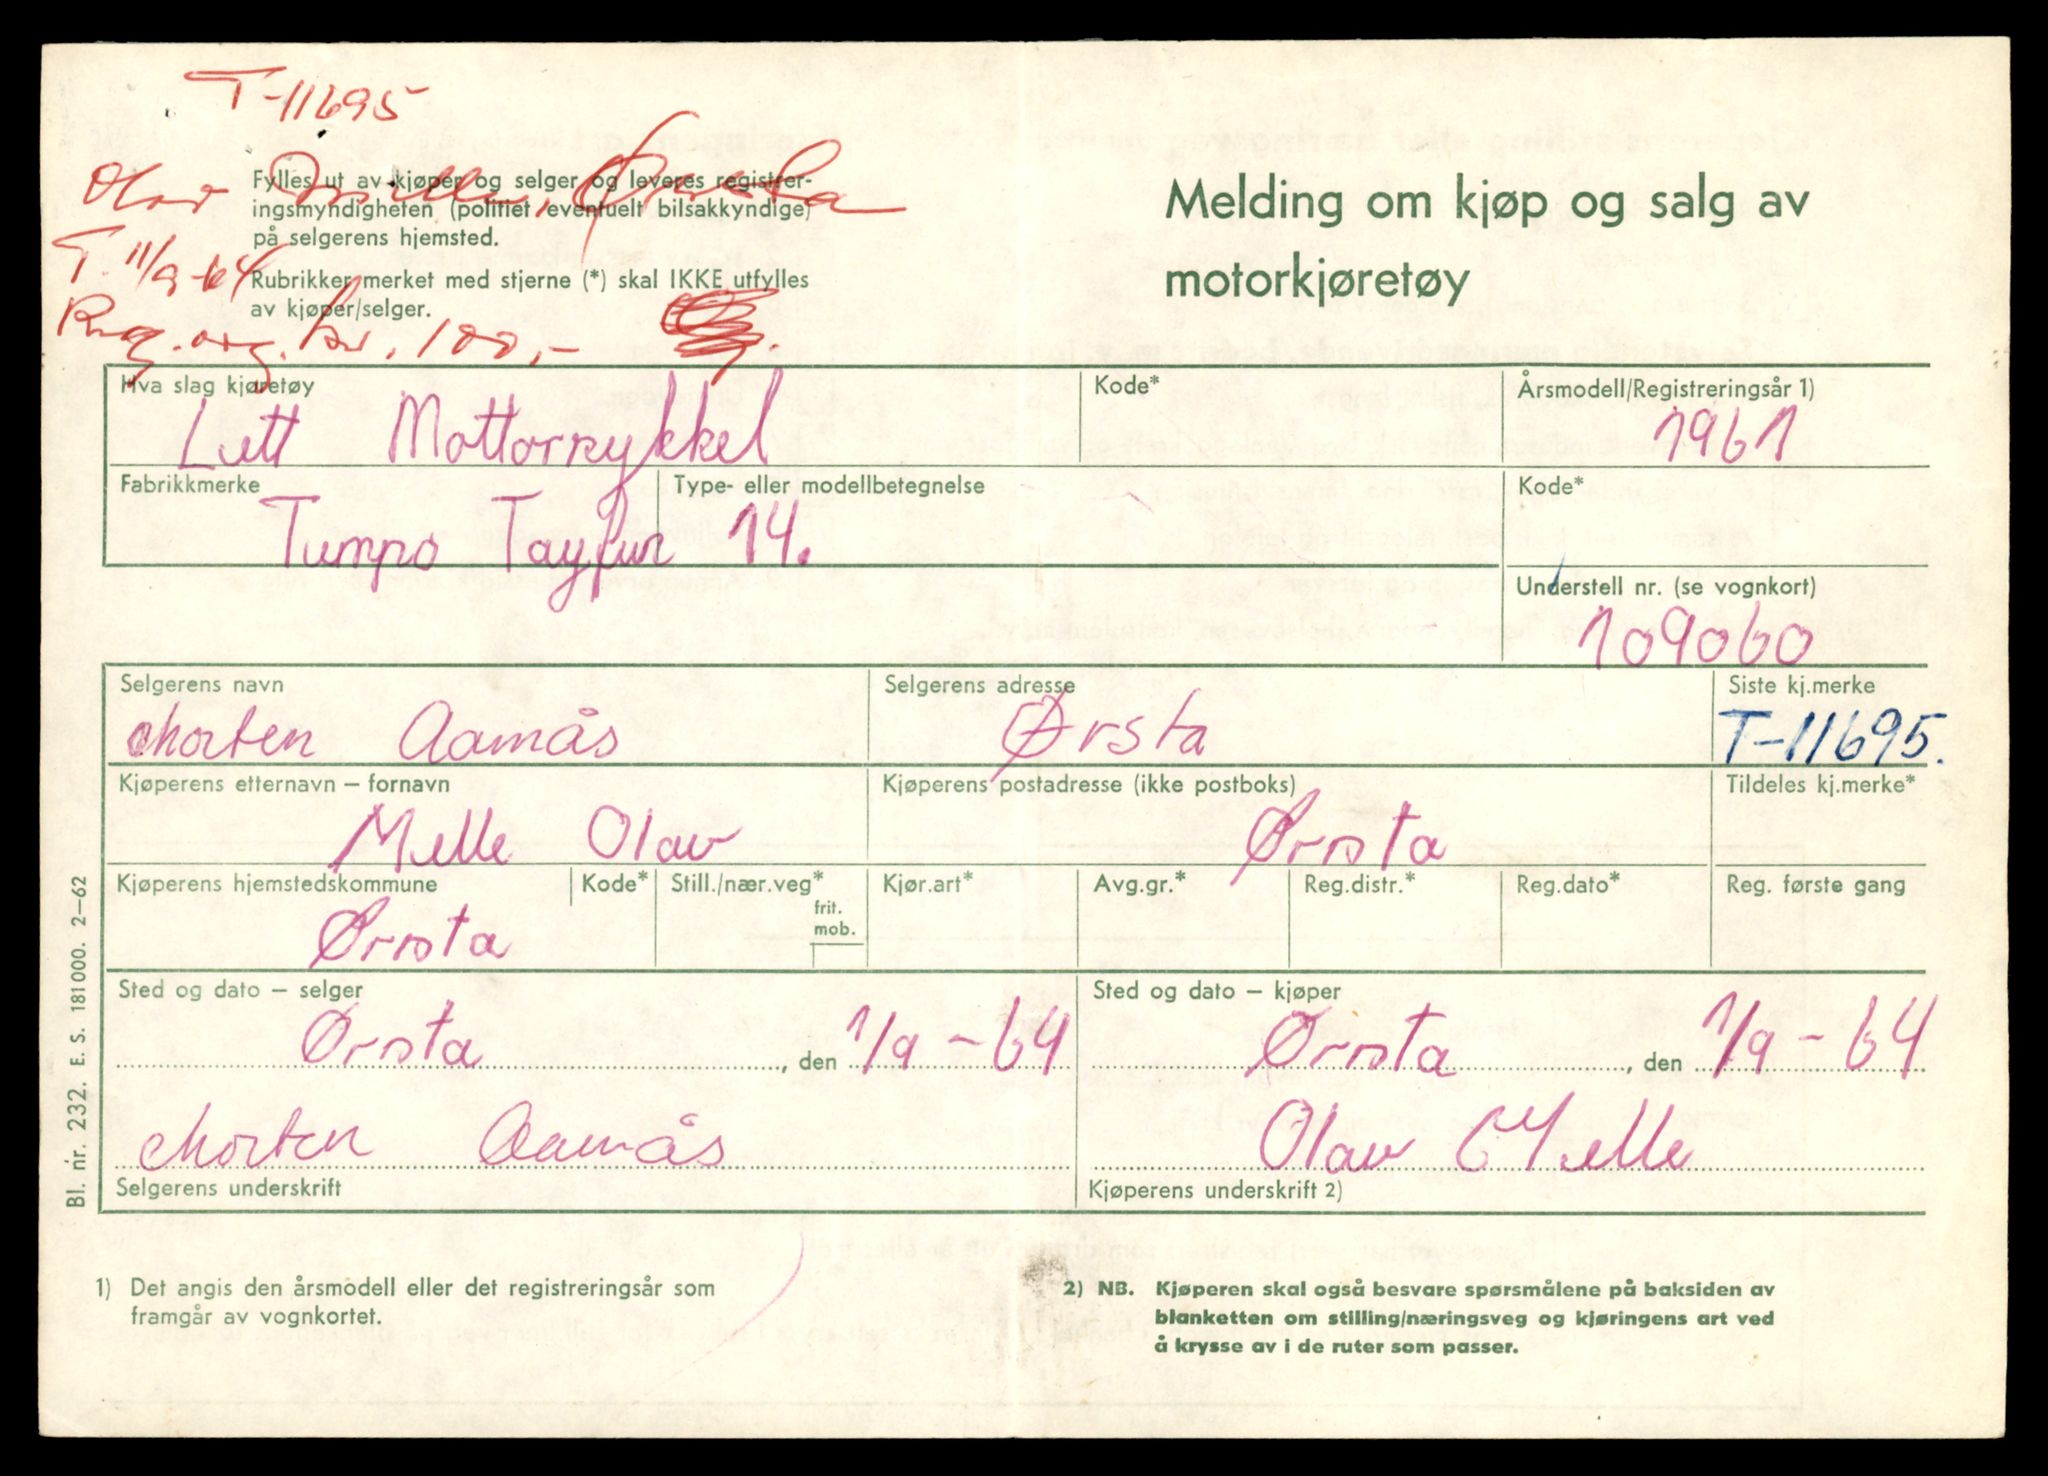 T-11695
Olav Melle, Ørsta
T. 11/9-64
Reg. avg. kr. 100,-
Fylles ut av kjøper og selger og leveres registrer-
ingsmyndigheten (politiet, eventuelt bilsakkyndige)
på selgerens hjemsted.
Rubrikker merket med stjerne (*) skal IKKE utfylles
av kjøper/selger.
Melding om kjøp og salg av
motorkjøretøy
Hva slag kjøretøy Kode* Årsmodell/Registreringsår 1)
Lett Mottorsykkel 1961
Fabrikkmerke Type- eller modellbetegnelse Kode*
Tempo Tayfun 14.
Understell nr. (se vognkort)
109060
Selgerens navn Selgerens adresse Siste kj.merke
Morten Aamås Ørsta T-11695.
Kjøperens etternavn – fornavn Kjøperens postadresse (ikke postboks) Tildeles kj.merke*
Melle Olav Ørsta
Kjøperens hjemstedskommune Kode* Still./nær.veg* frit. mob. Kjør.art* Avg.gr.* Reg.distr.* Reg.dato* Reg. første gang
Ørsta
Sted og dato – selger Sted og dato – kjøper
Ørsta, den 1/9-64 Ørsta, den 1/9-64
Morten Aamås Olav Melle
Selgerens underskrift Kjøperens underskrift 2)
1) Det angis den årsmodell eller det registreringsår som
framgår av vognkortet.
2) NB. Kjøperen skal også besvare spørsmålene på baksiden av
blanketten om stilling/næringsveg og kjøringens art ved
å krysse av i de ruter som passer.
Bl. nr. 232. E. S. 181000. 2–62